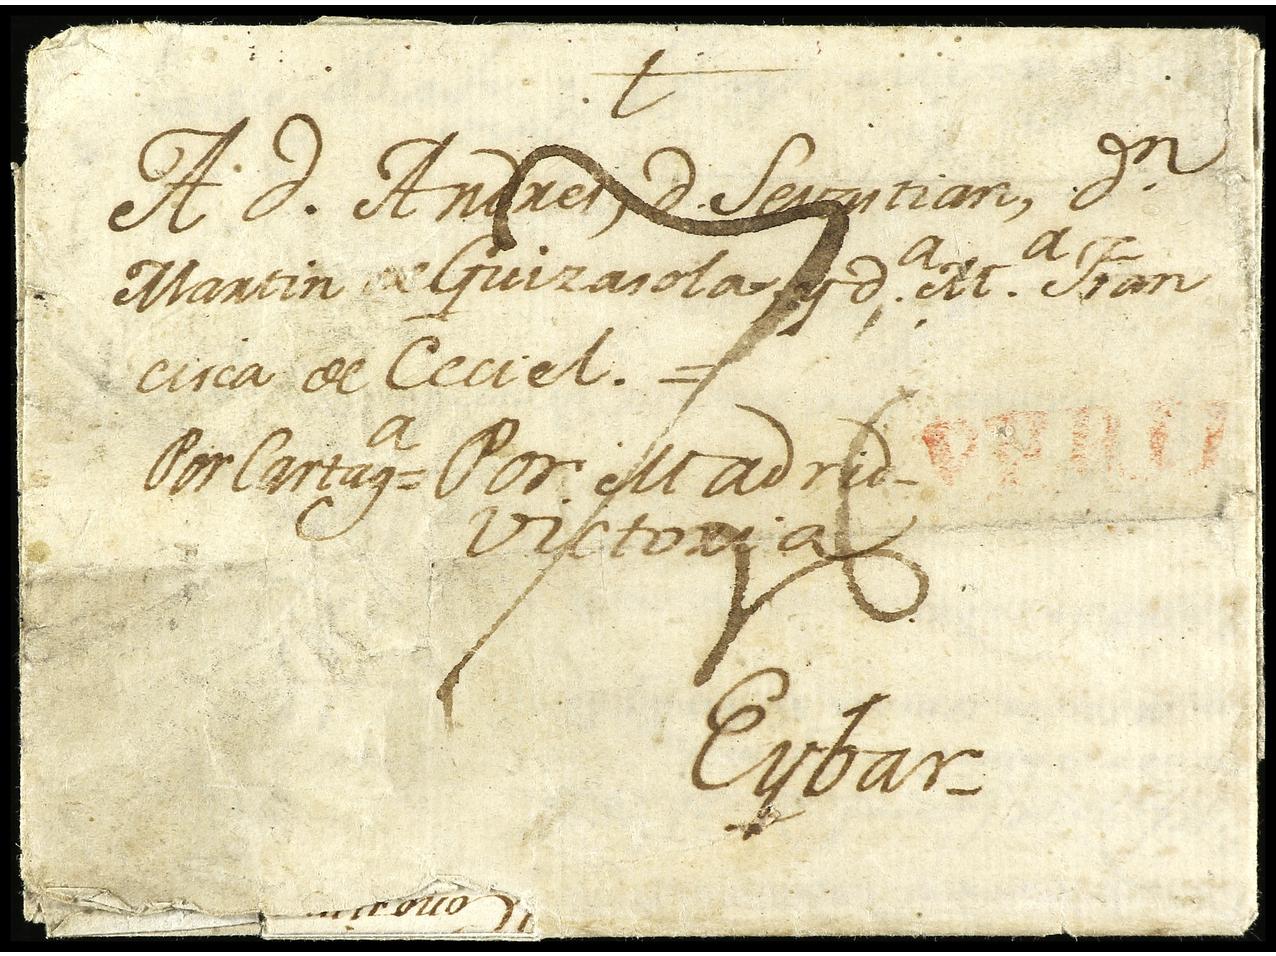 A d. Andres, d. Sevastian, dn.
Martin de Guizasola, y da. Ma. Fran
cisca de Ceciel. =
Por Cartaga = Por Madrid -
Victoria
Eybar -